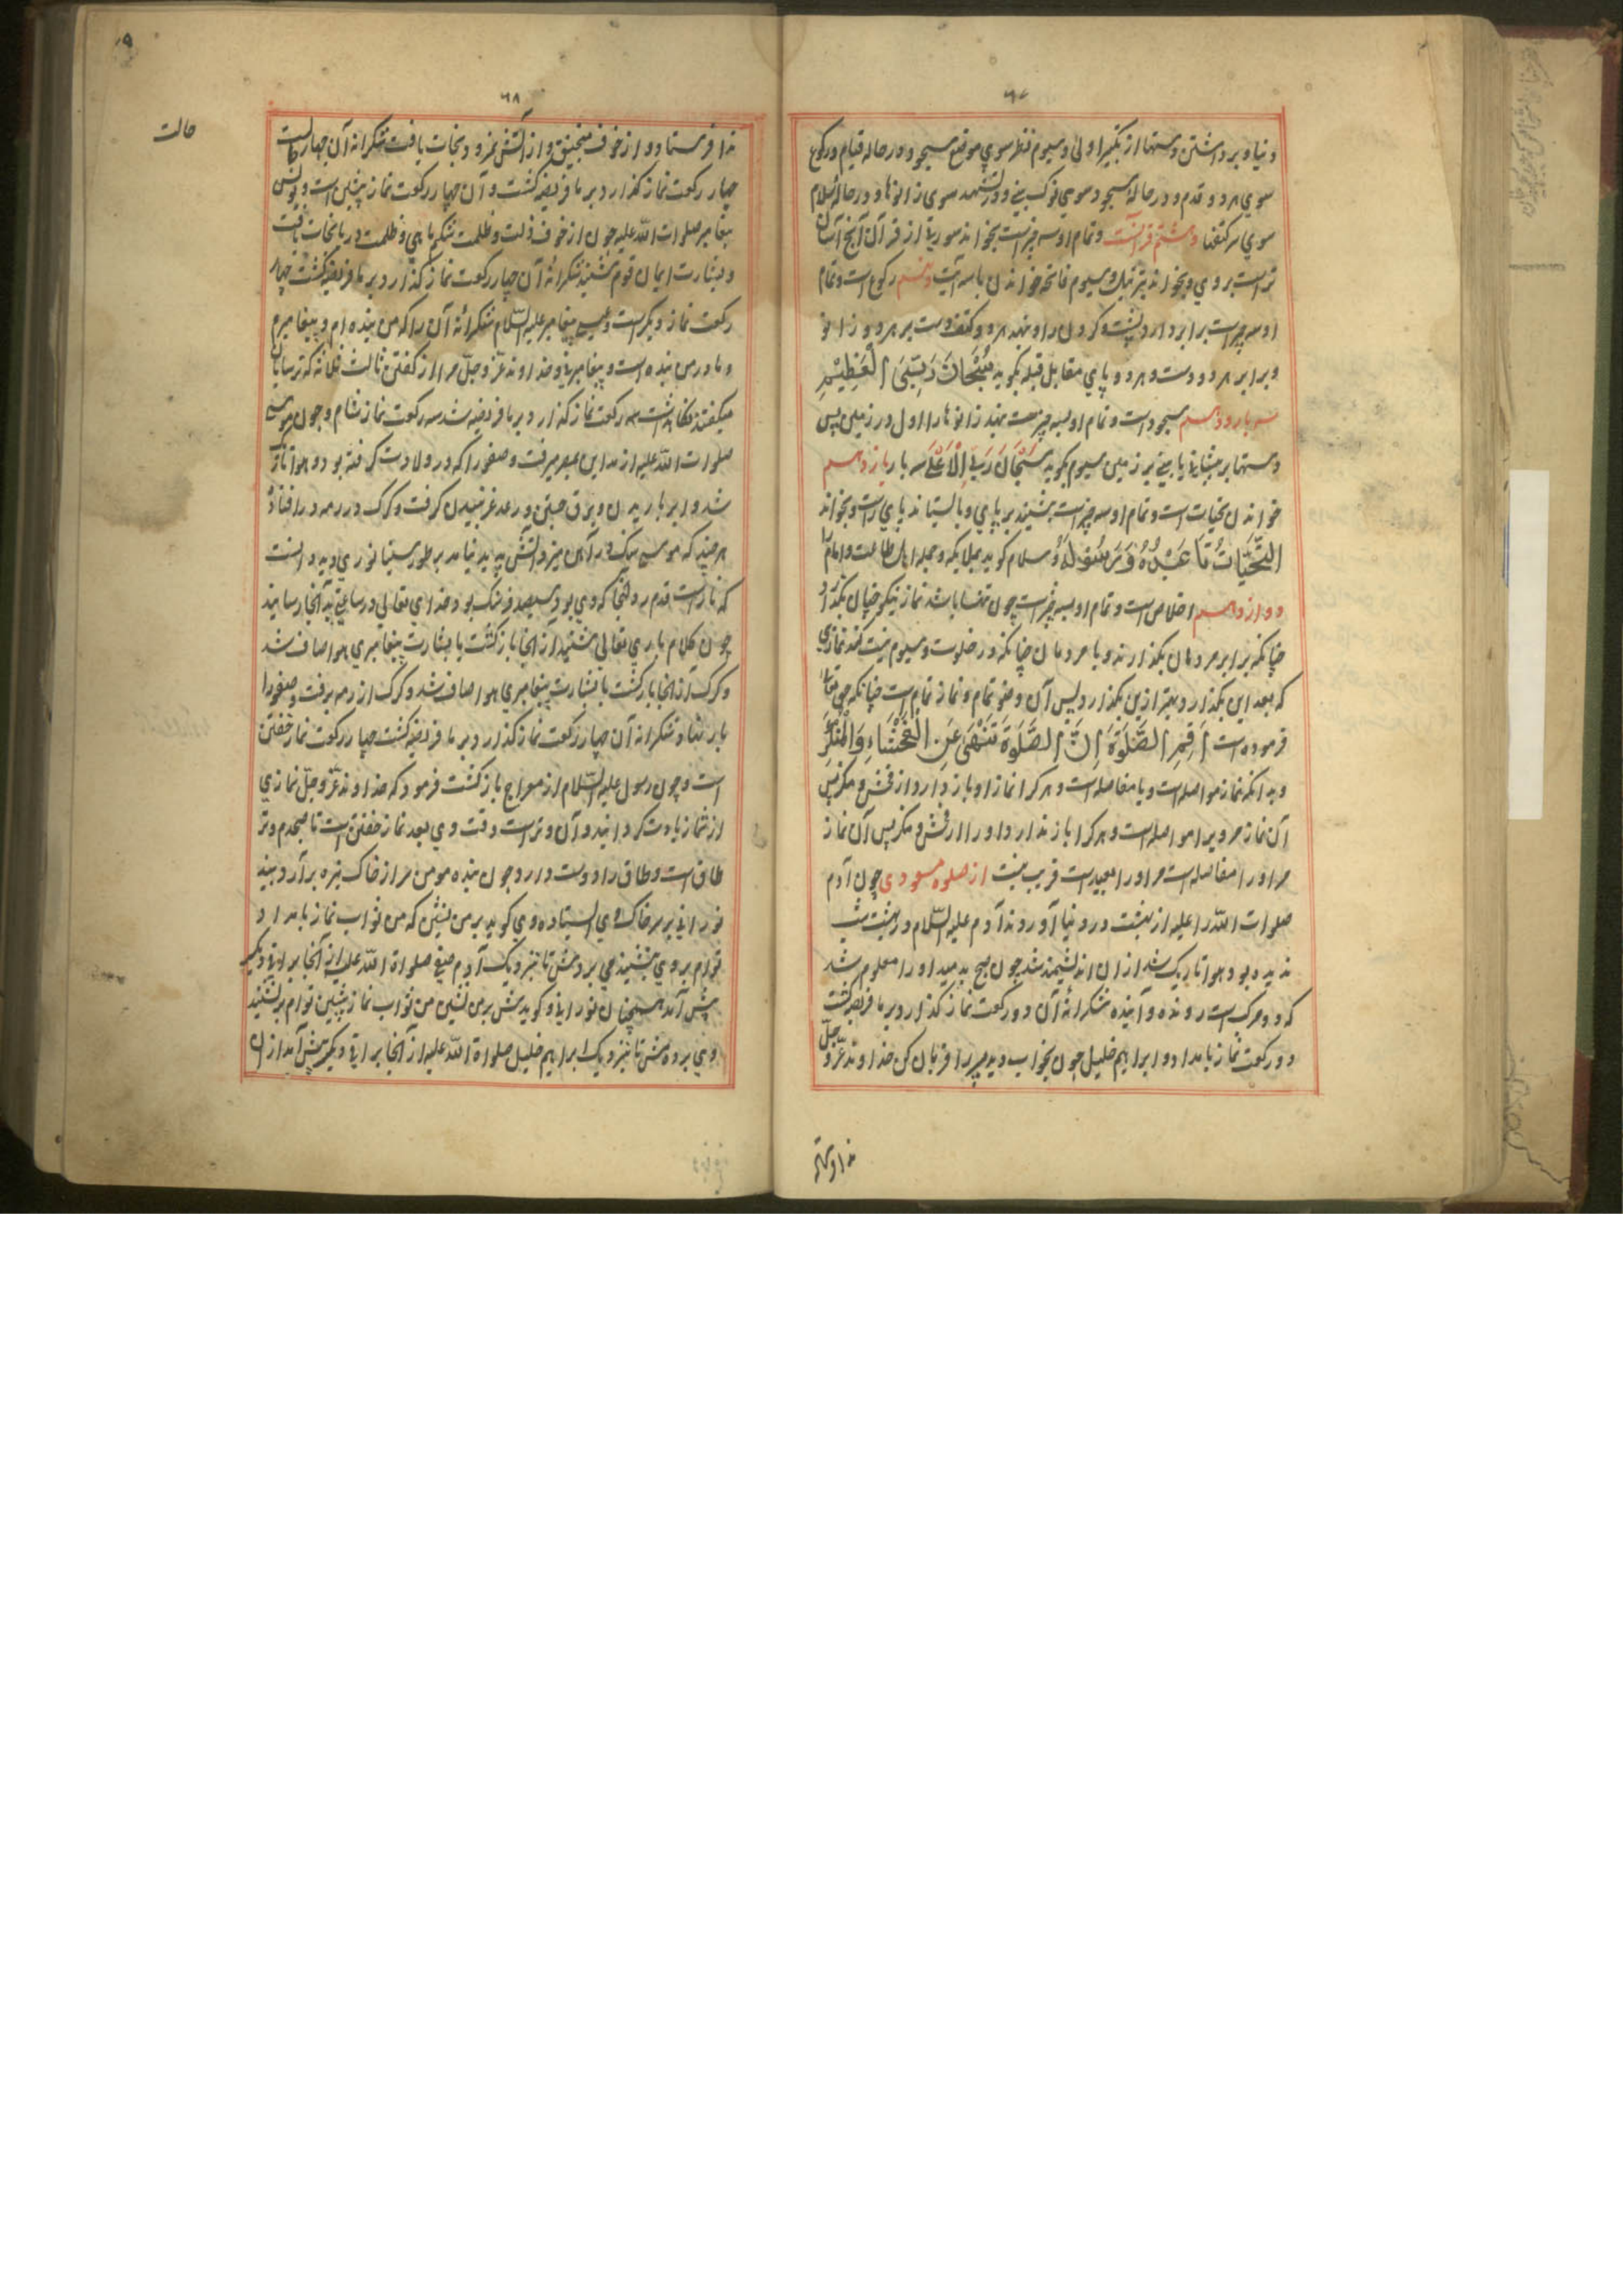 ٦٧
دنیا و برداشتن دستها از تکبیر اولی و سیوم نظر سوی موضع سجود و در حاله قیام و رکوع
سوی هر دو قدم و در حالهٔ سجود سوی نوک بینی و در تشهد سوی زانوها و در حاله سلام
سوی هر کتفها و هشتم قرآنست و تمام او سه چیز است بخواند سوره از قرآن آنچ آسان
تر است بروی و بخواند بترتیل و سیوم فاتحه خواندن با سه آیت و نهم رکوع است و تمام
او سه چیز است برابر دارد پشت و گردن را و بنهد هر دو کف دست بر هر دو زانو
و برابر هر دو دست و هر دو پای مقابل قبله بگوید سُبْحَانَ رَبِّیَ الْعَظِیْمِ
سه بار و دهم سجود است و تمام او بسه چیز است بنهد زانوها را اول در زمین پس
دستها پس پیشانی با بینی بر زمین سیوم بگوید سُبْحَانَ رَبِّیَ الْاَعْلَی سه بار یازدهم
خواندن تحیات است و تمام او سه چیز است بنشیند بر پای و بایستاند پای راست و بخواند
التَّحِیَّاتُ تا عَبْدُهُ وَرَسُوْلُهُ و سلام گوید بملایکه و جمله اهل طاعت و امام را
دوازدهم اخلاص است و تمام او بسه چیز است چون تنها باشد نماز نیکو چنان بگذارد
چنانکه برابر مردمان بگذارند و با مردمان چنانکه در خلوت و سیوم نیت کند نمازی
که بعد این بگذارد بهتر ازین بگذارد پس آن وضو تمام و نماز تمام است چنانکه حق تعالی
فرموده است اَقِمِ الصَّلٰوةَ اِنَّ الصَّلٰوةَ تَنْهٰی عَنِ الْفَحْشَاءِ وَالْمُنْکَرِ
و بدانکه نماز مواصله است و یا مفاصله است و هر کرا نماز او باز دارد از فحش و منکر پس
آن نماز مر ویرا مواصله است و هر کرا باز ندارد او را از فحش و منکر پس آن نماز
مر او را مفاصله است مر او را بعید است قریب نیست از صلوة مسعودی چون آدم
صلوات الله را علیه از بهشت در دنیا آوردند آدم علیه السلام در بهشت شب
ندیده بود و هوا تاریک شد از ان اندیشمند شد چون صبح بدمید او را معلوم شد
که دو حرکت است رونده و آینده شکرانهٔ آن دو رکعت نماز گذارد بر ما فریضه گشت
دو رکعت نماز بامداد و ابراهیم خلیل چون بخواب دید پسر را قربان کن خداوند عزّ و جلّ
٦٨
حالت
فدا فرستاد و از خوف منجنیق و از آتش نمرود نجات یافت شکرانه آن چهار
چهار رکعت نماز گذارد بر ما فریضه گشت و آن چهار رکعت نماز پیشین است و یونس
پیغامبر صلوات الله علیه چون از خوف ذلت و ظلمت شکم ماهی و ظلمت دریا نجات یافت
و بشارت ایمان قوم شنید شکرانهٔ آن چهار رکعت نماز گذارد بر ما فریضه گشت چهار
رکعت نماز دیگر است و عیسی پیغامبر علیه السلام شکرانهٔ آن را که من بنده ام و پیغامبرم
و مادر من بنده است و پیغامبر نی و خداوند عزّ و جلّ مرا از گفتن ثالث ثلاثه که ترسایان
میگفتند نگاه داشت سه رکعت نماز گذارد بر ما فریضه شد سه رکعت نماز شام و چون موسی
صلوات الله علیه از مداین بمصر میرفت و صفورا که درد ولادت گرفته بود و هوا تاریک
شد و ابر باریدن و برق جستن و رعد غریدن گرفت و گرگ در رمه در افتاد
هر چند که موسی سنگ در آهن میزد آتش پدید نیامد بر طور سینا نوری دید دانست
که نار است قدم برد آنجا که وی بود سیصد فرسنگ بود خدای تعالی در ساعتی به آنجا رسانید
چون کلام باری تعالی بشنید از انجا باز گشت با بشارت پیغامبری هوا صاف شد
و گرگ از انجا باز گشت با بشارت پیغامبری هوا صاف شد و گرگ از رمه برفت و صفورا
بار نهاد شکرانه آن چهار رکعت نماز گذارد بر ما فریضه گشت چهار رکعت نماز خفتن
است و چون رسول علیه السلام از معراج باز گشت فرمود که خداوند عزّ و جلّ نمازی
از شما زیادت گردانید و آن وتر است وقت وی بعد نماز خفتن است تا صبحدم وتر
طاق است و طاق را دوست دارد چون بنده مومن سر از خاک تیره بر آرد بیند
نورانی بر سر خاک وی ایستاده وی گوید بر من نشین که من ثواب نماز بامداد
توام بر وی نشیند می بردش تا نزدیک آدم صفی صلواة الله علیه از آنجا براقی دیگر
پیش آمد همچنان نورانی و گویدش بر من نشین من ثواب نماز پیشین توام بر نشیند
وی بردش تا نزدیک ابراهیم خلیل صلواة الله علیه از آنجا براقی دیگر پیش آمد از ان